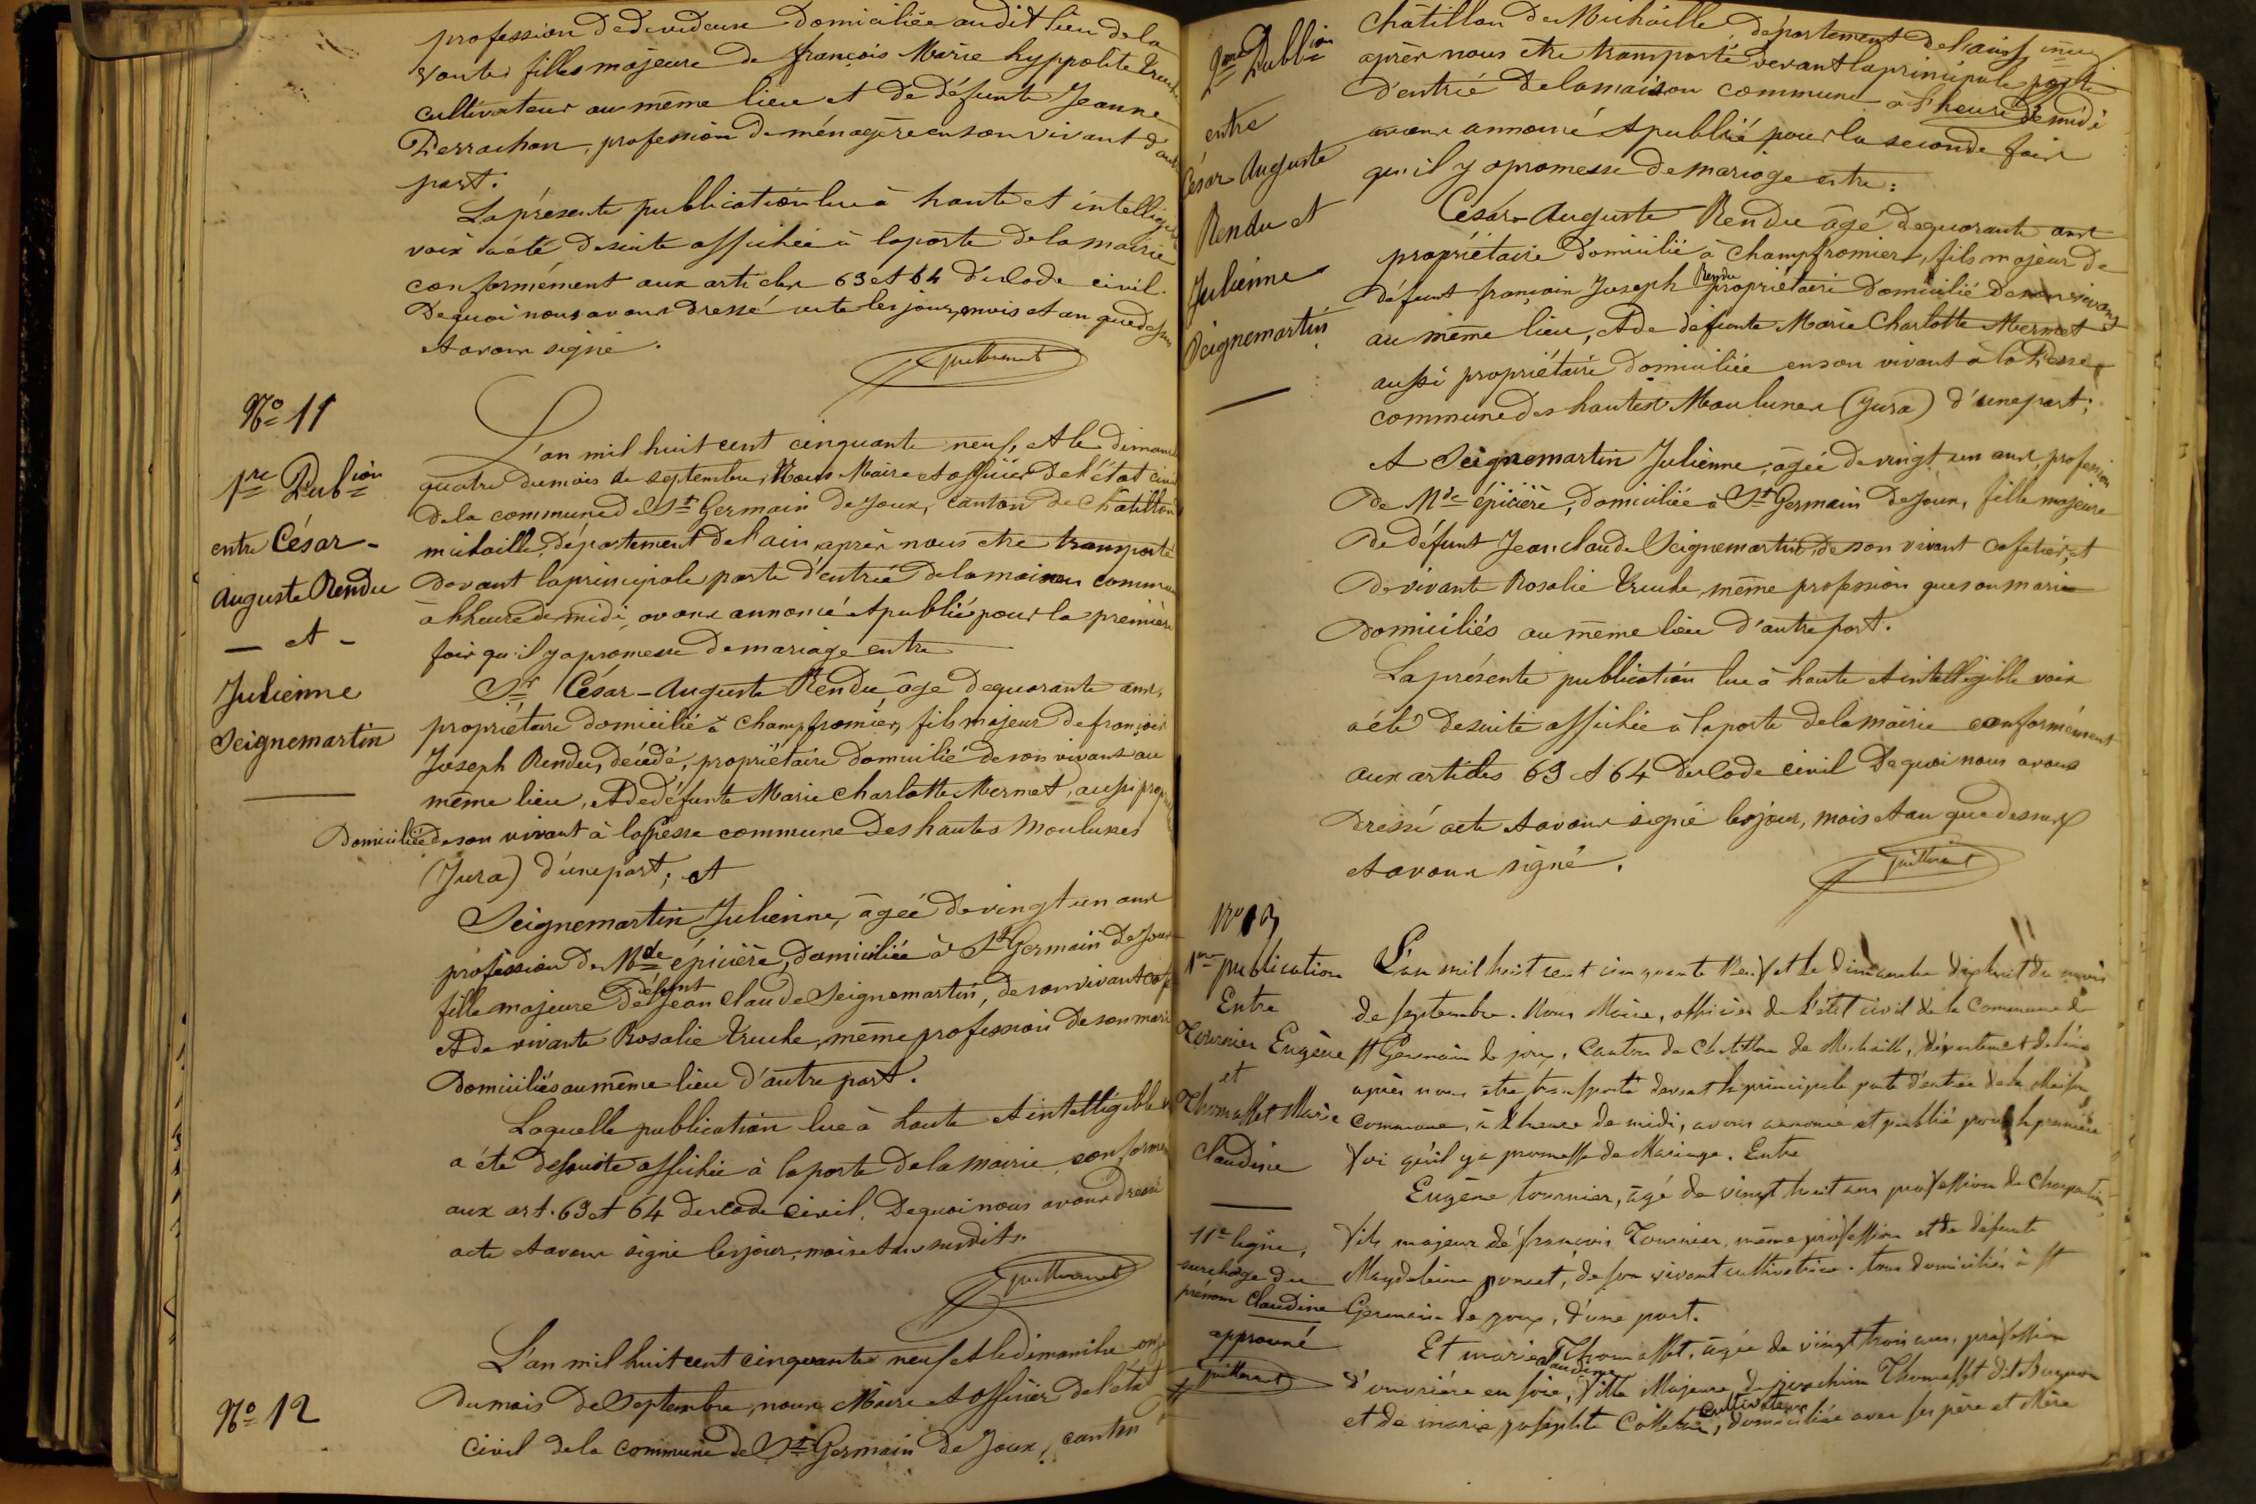 profession de devideuse domiciliée audit lieu de la
Voute, fille majeure de françois Marie hyppolite Truche
cultivateur au même lieu et de défunte Jeanne
Perrachon, profession de ménagère en son vivant d'autre
part.
La présente publication lue à haute et intelligible
voix a été desuite affichée à la porte de la mairie
conformément aux articles 63 et 64 du Code civil.
De quoi nous avons dressé acte les jour, mois et an que dessus
et avons signé.
No 11
1re Pubion
entre César-
Auguste Rendu
- et -
Julienne
Seignemartin
L'an mil huit cent cinquante neuf, et le dimanche
quatre du mois de septembre, Nous Maire et officier de l'état civil
de la commune de St Germain de Joux, canton de Châtillon
michaille, département de l'ain, après nous etre transporté
devant la principale porte d'entrée de la maison commune
à l'heure de midi, avons annoncé et publié pour la première
fois qu'il y a promesse de mariage entre
Sr César-Auguste Rendu âgé de quarante ans,
propriétaire domicilié à Champfromier, fils majeur de françois
Joseph Rendu, décédé, propriétaire domicilié de son vivant au
même lieu, et de défunte Marie Charlotte Mermet, aussi
Domiciliée de son vivant à la Pesse commune des hautes Moulunes
(Jura) d'une part; et
Seignemartin Julienne, âgée de vingt un ans
profession de Mde épicière, domiciliée à St Germain de Joux
fille majeure de défunt Jean Claude Seignemartin, de son vivant
et de vivante Rosalie Truche, même profession de son mari
Domiciliés au même lieu d'autre part.
Laquelle publication lue à haute et intelligible
a été desuite affichée à la porte de la mairie, conformé
aux art. 63 et 64 du Code civil. De quoi nous avons dressé
acte et avons signé les jour, mois et an susdits.
No 12
L'an mil huit cent cinquante neuf et le dimanche onze
du mois de Septembre, nous Maire et officier de l'état
civil de la commune de St Germain de Joux, canton
2me Publion
entre
César Auguste
Rendu et
Julienne
Seignemartin
Châtillon de Michaille, département de l'ain,
après nous etre transporté devant la principale porte
d'entrée de la maison commune à l'heure de midi
avons annoncé et publié pour la seconde fois
qu'il y a promesse de mariage entre:
César-Auguste Rendu âgé de quarante ans
propriétaire domicilié à Champfromier, fils majeur de
défunt françois Joseph Rendu propriétaire domicilié de son vivant
au même lieu, et de défunte Marie Charlotte Mermet
aussi propriétaire domiciliée en son vivant à la Pesse,
commune des hautes Moulunes (Jura) d'une part;
et Seignemartin Julienne, âgée de vingt un ans, profession
de Mde épicière, domiciliée à St Germain de Joux, fille majeure
de défunt Jean Claude Seignemartin, de son vivant cafetier, et
de vivante Rosalie Truche, même profession que son mari
domiciliés au même lieu d'autre part.
La présente publication lue à haute et intelligible voix
a été desuite affichée à la porte de la mairie conformément
aux articles 63 et 64 du Code civil De quoi nous avons
dressé acte et avons signé les jour, mois et an que dessus
et avons signé.
No 13
1re publication
Entre
Tournier Eugène
et
Thomasset Marie
Claudine
L'an mil huit cent cinquante Neuf et le dimanche dix huit du mois
de Septembre. Nous Maire, officier de l'état civil de la Commune de
St Germain de joux, Canton de Chatillon de Michaille, département de l'ain
après nous etre transporté devant la principale porte d'entrée de la Maison
Commune, à l'heure de midi, avons annoncé et publié pour la première
fois qu'il y a promesse de Mariage. Entre
Eugène tournier, âgé de vingt huit ans profession de Charpentier,
fils majeur de françois Tournier, même profession et de défunte
Magdeleine poncet, de son vivant cultivatrice. tous domiciliés à St
Germain de joux, d'une part.
Et marie Claudine Thomasset, âgée de vingt trois ans, profession
d'ouvrière en soie, fille Majeure de joachim Thomasset dit
et de marie josephte cultivateurs, domiciliée avec ses père et Mère
11e ligne,
surcharge du
prénom Claudine
approuvé